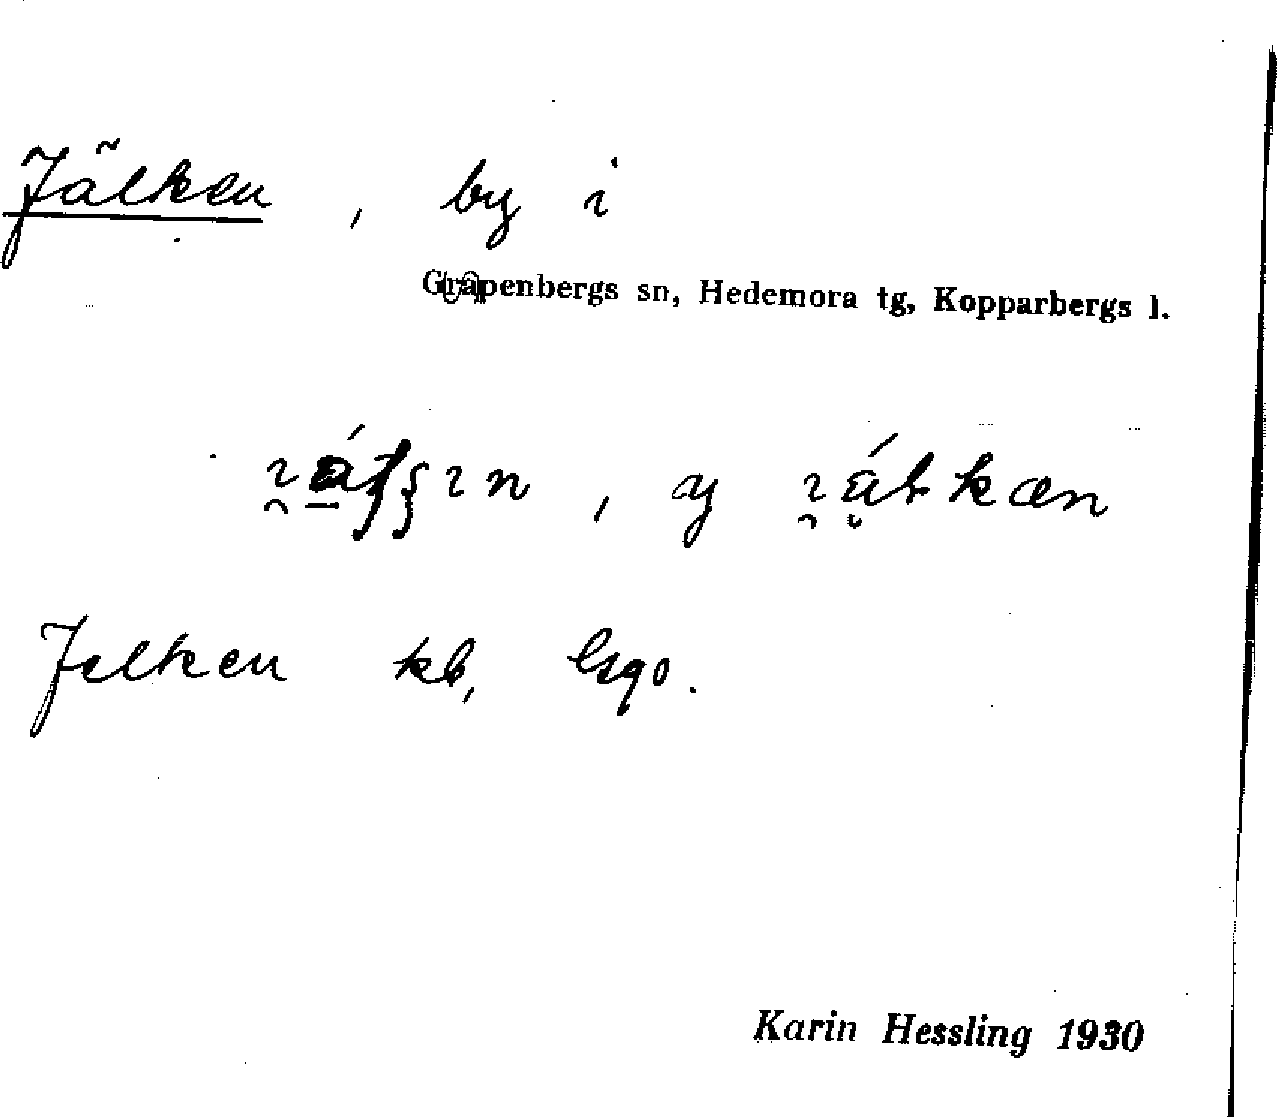 Jälken, by i
Grapenbergs sn, Hedemora tg, Kopparbergs l.
, av
Jelken kb,
Karin Hessling 1930